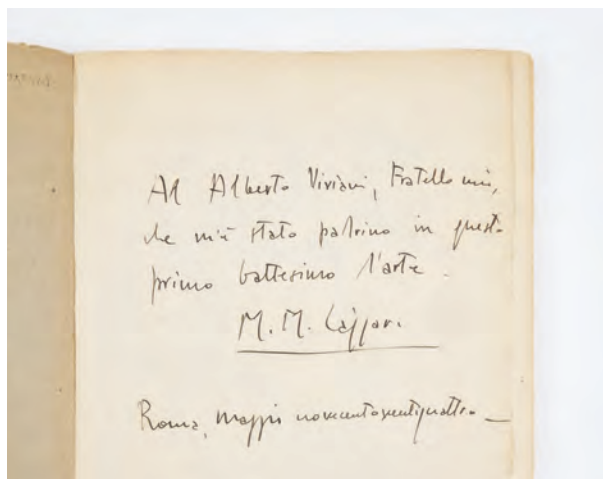 Ad Alberto Viviani, Fratello mio,
che m'è stato padrino in questo
primo battesimo d'arte.
M. M.
Roma, maggio novecentoventiquattro —